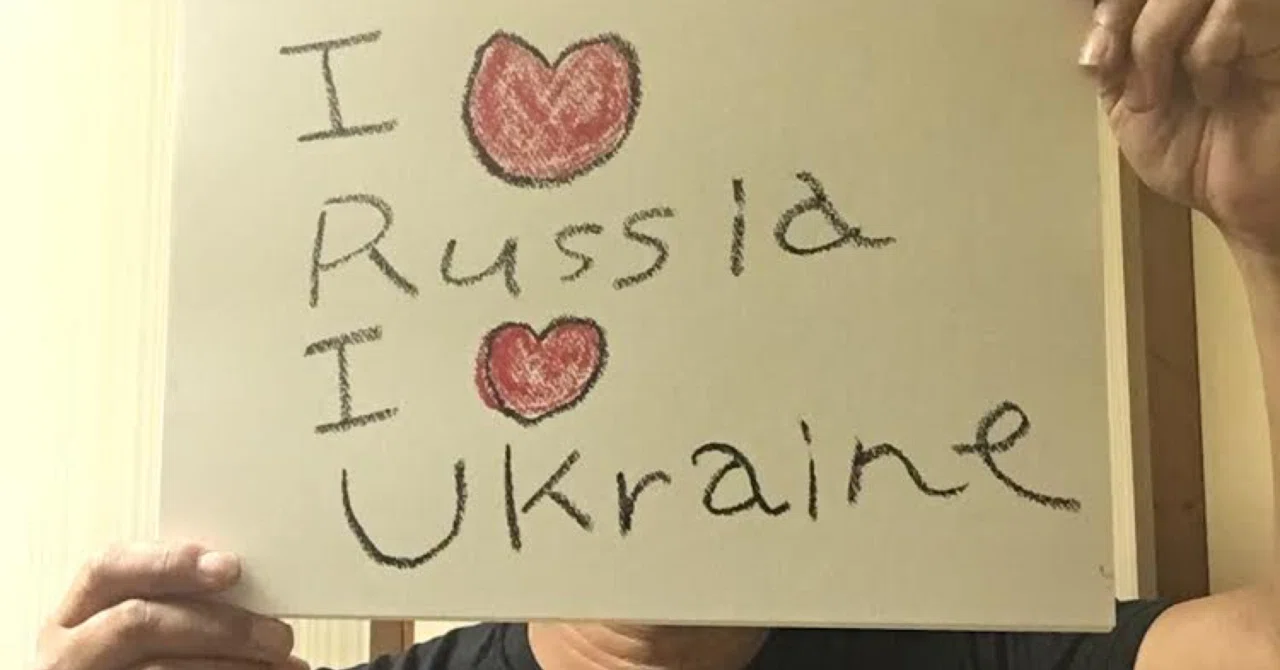 I ❤
Russia
I ❤
Ukraine